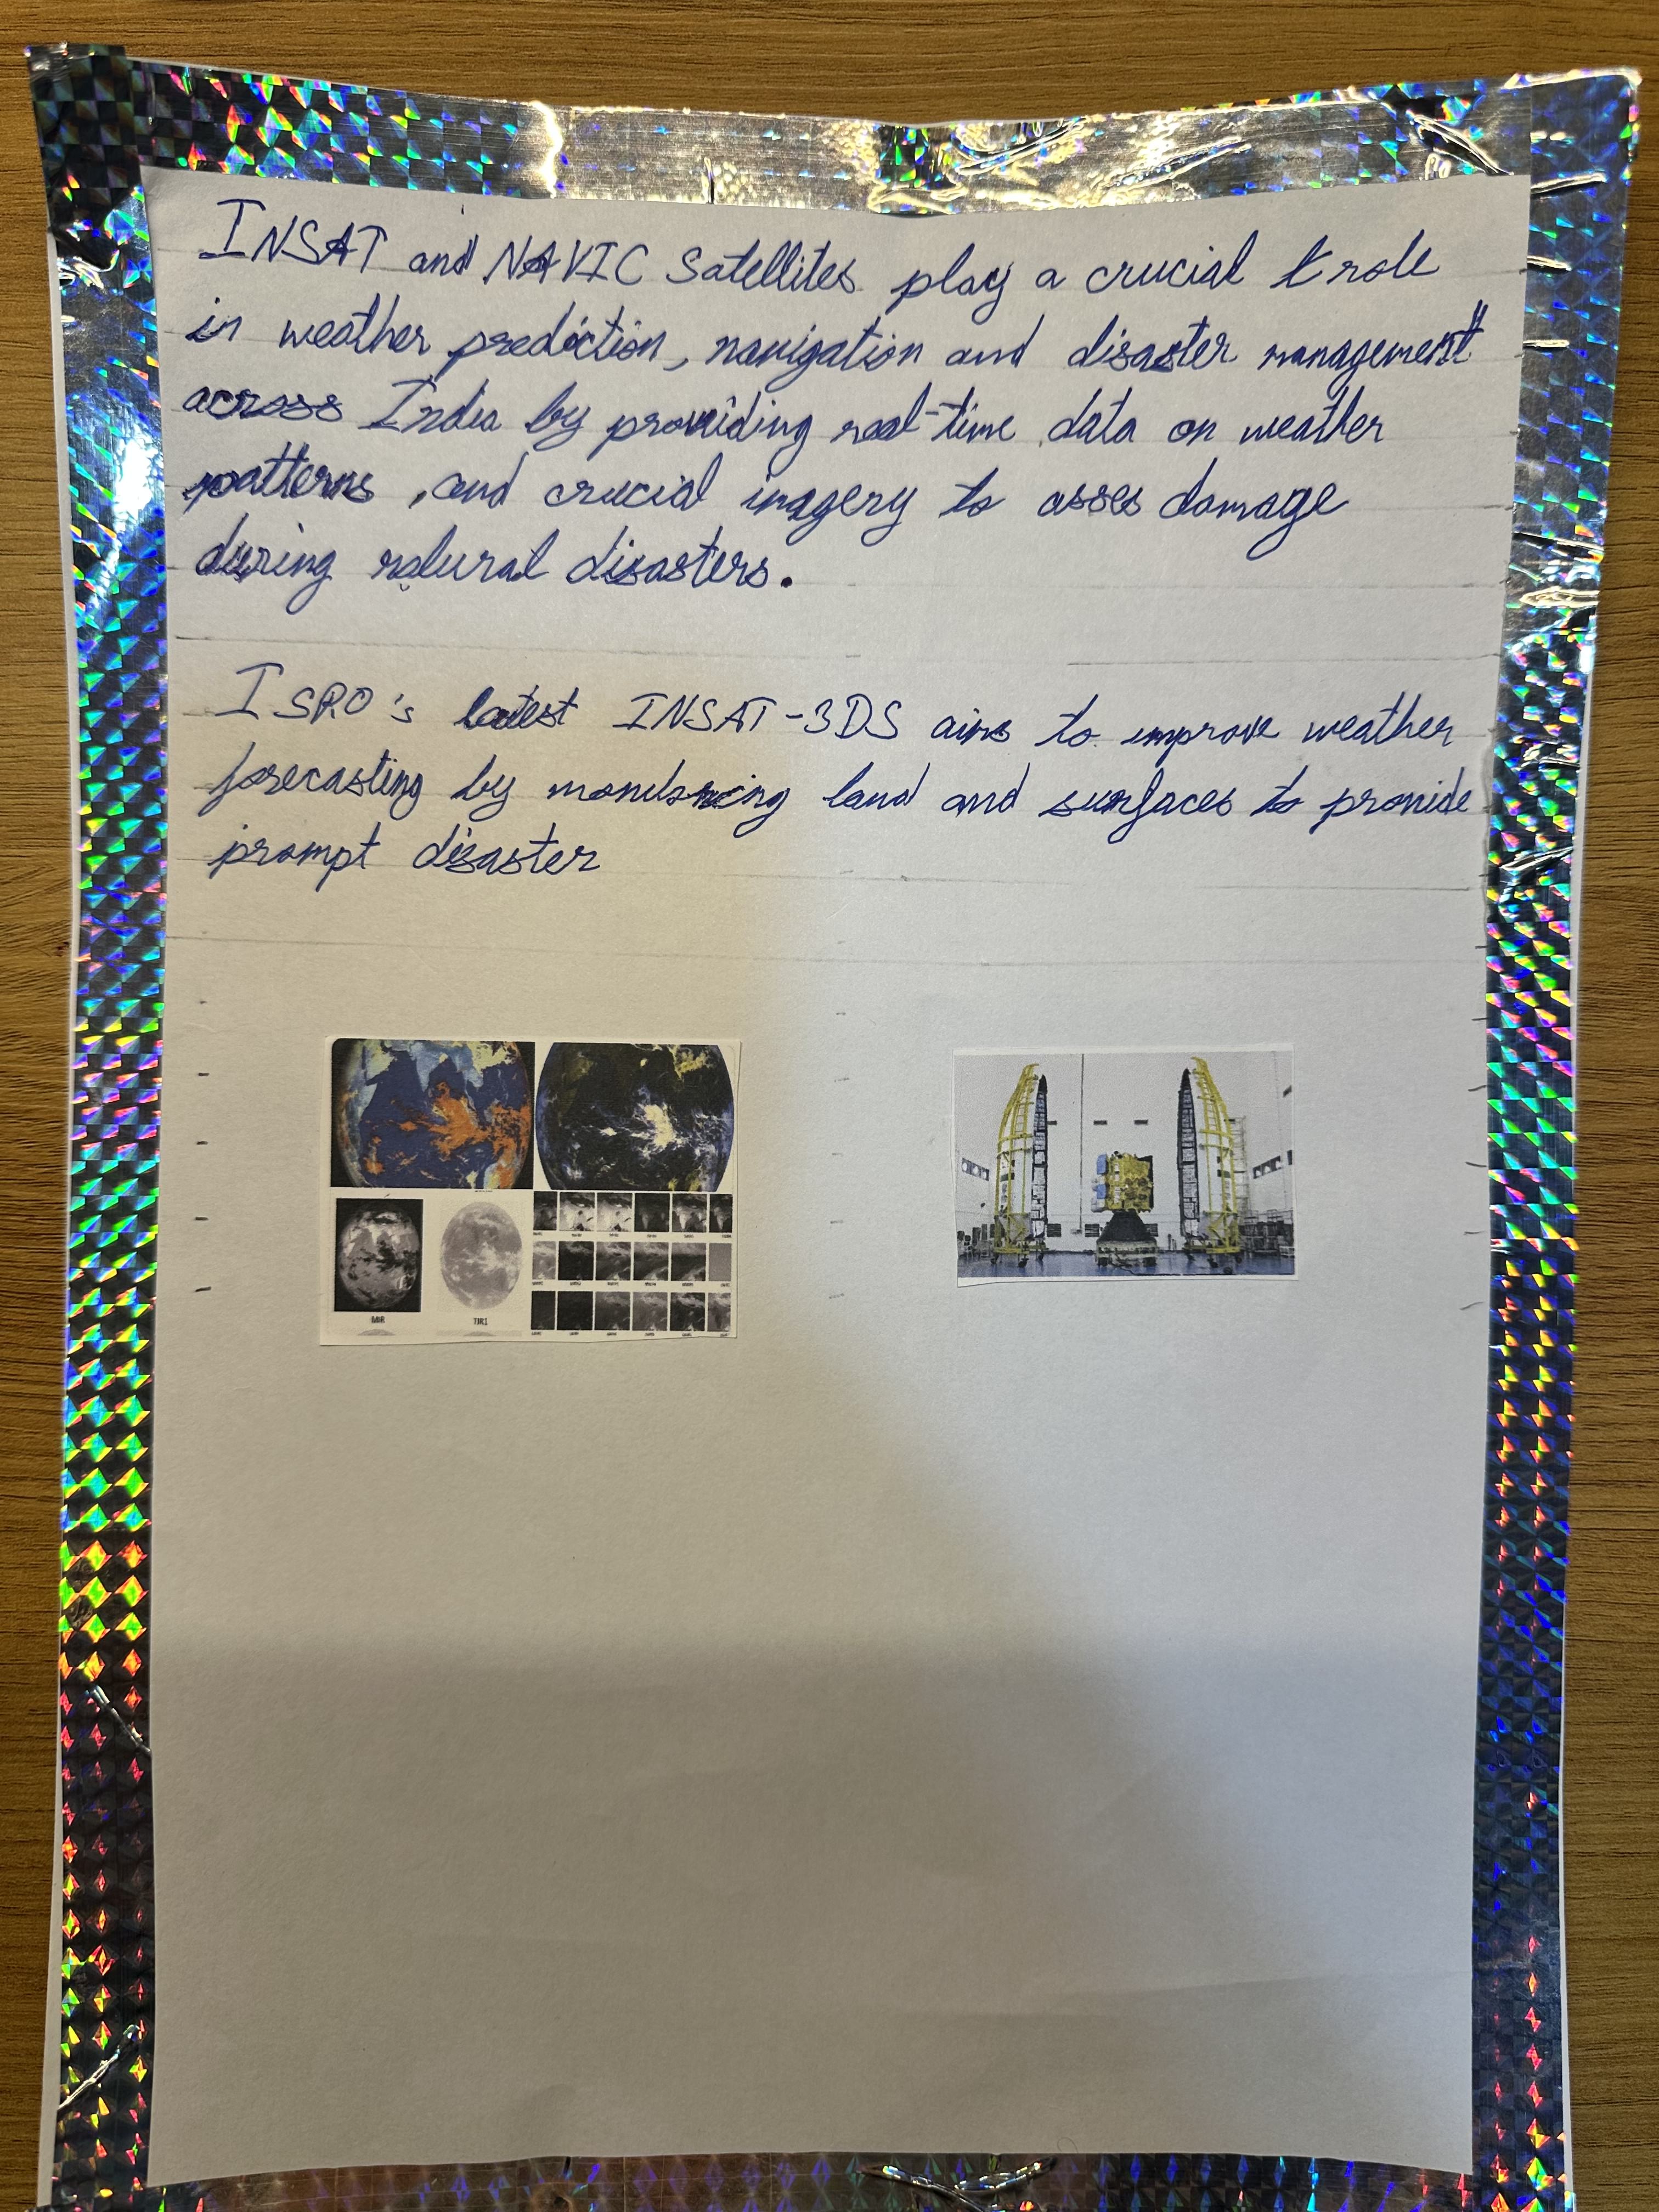 INSAT and NAVIC Satellites play a crucial role
in weather prediction, navigation and disaster management
across India by providing real-time data on weather
patterns, and crucial imagery to asses damage
during natural disasters.
ISRO's latest INSAT-3DS aims to improve weather
forecasting by monitoring land and surfaces to provide
prompt disaster
MIR
TIR1